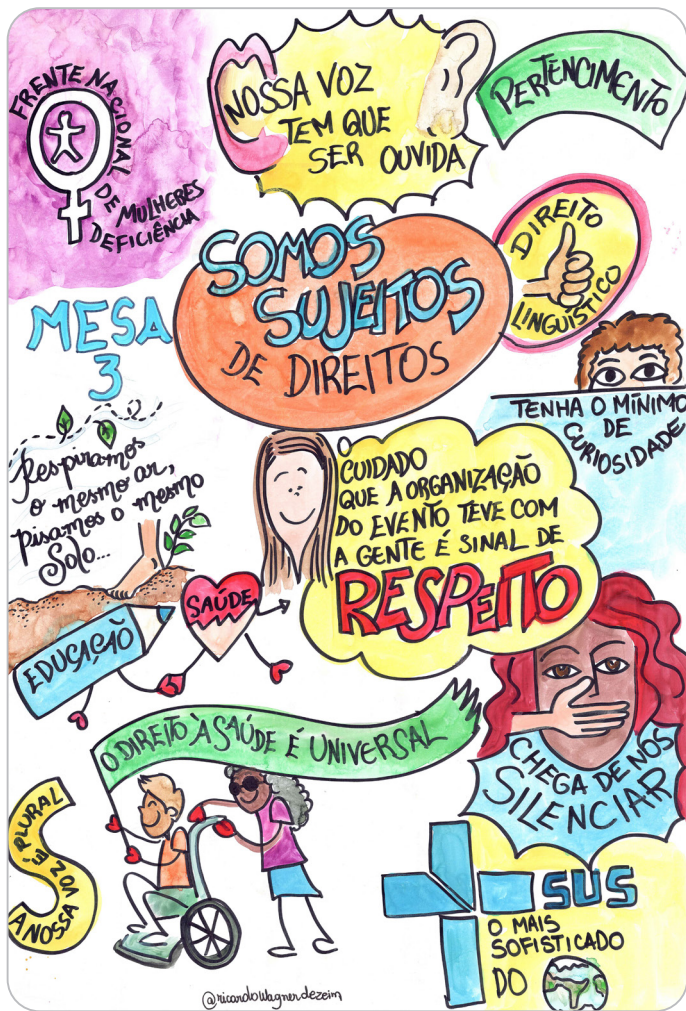 FRENTE NACIONAL
DE MULHERES
DEFICIÊNCIA
NOSSA VOZ
TEM QUE
SER OUVIDA
PERTENCIMENTO
SOMOS
SUJEITOS
DE DIREITOS
DIREITO
LINGUÍSTICO
MESA
3
TENHA O MÍNIMO
DE
CURIOSIDADE
Respiramos
o mesmo ar,
pisamos o mesmo
Solo...
O
CUIDADO
QUE A ORGANIZAÇÃO
DO EVENTO TEVE COM
A GENTE É SINAL DE
RESPEITO
EDUCAÇÃO
SAÚDE
O DIREITO À SAÚDE É UNIVERSAL
CHEGA DE NOS
SILENCIAR
A NOSSA VOZ É PLURAL
S
SUS
O MAIS
SOFISTICADO
DO
@ricardowagnerdezeim